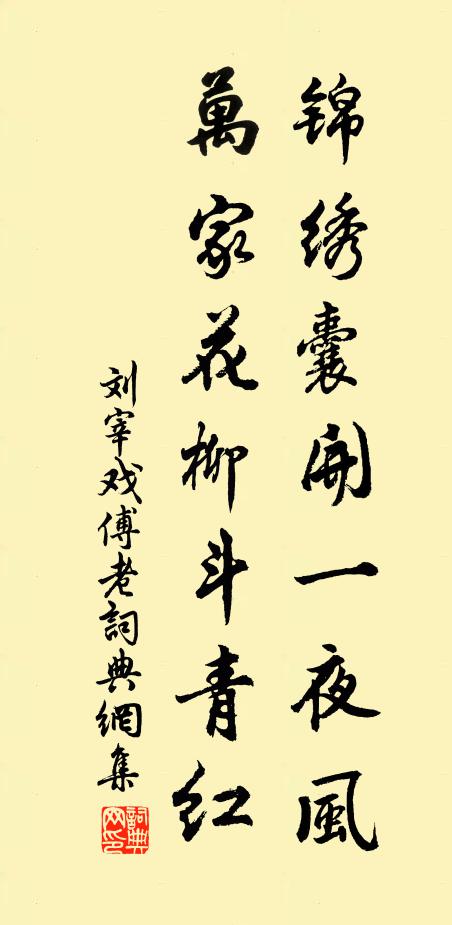 锦绣囊開一夜風
萬家花柳斗青红
刘宰戏傅老詞典網集
詞典網印